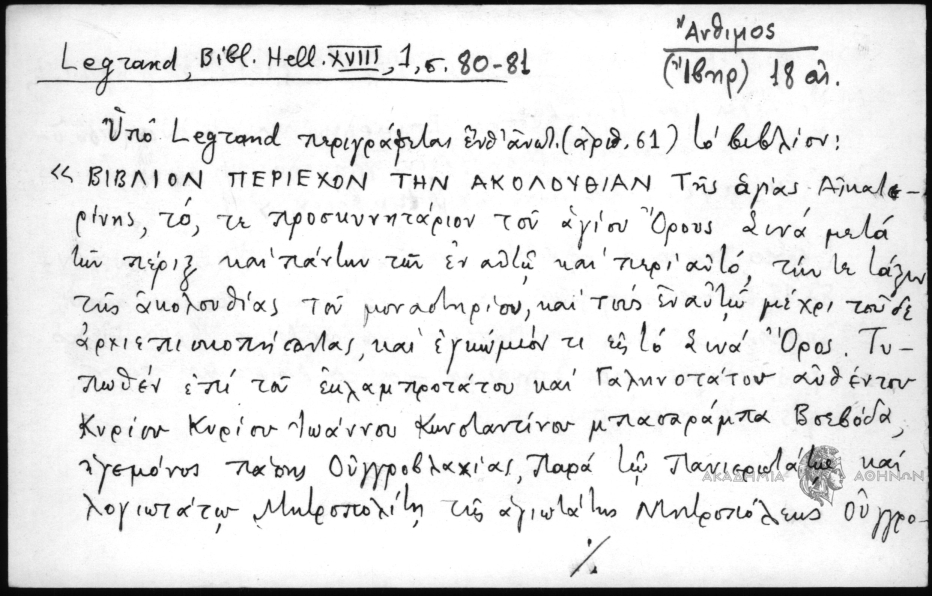 Ἄνθιμος
Legrand, Bibl. Hell. XVIII, 1, σ. 80-81
(Ἴβηρ) 18 αἰ.
Ὑπὸ Legrand περιγράφεται ἐνθ' ἀνωτ. (ἀριθ. 61) τὸ βιβλίον:
«ΒΙΒΛΙΟΝ ΠΕΡΙΕΧΟΝ ΤΗΝ ΑΚΟΛΟΥΘΙΑΝ Τῆς ἁγίας Αἰκατε-
ρίνης, τό, τε προσκυνητάριον τοῦ ἁγίου Ὄρους Σινᾶ μετά
τῶν πέριξ καὶ πάντων τῶν ἐν αὐτῷ καὶ περὶ αὐτό, τήν τε τάξιν
τῆς ἀκολουθίας τοῦ μοναστηρίου, καὶ τοὺς ἐν αὐτῷ μέχρι τοῦδε
ἀρχιεπισκοπήσαντας, καὶ ἐγκώμιόν τι εἰς τὸ Σινᾶ Ὄρος. Τυ-
πωθέν ἐπί τοῦ ἐκλαμπροτάτου καί Γαληνοτάτου αὐθέντου
Κυρίου Κυρίου Ἰωάννου Κωνσταντίνου μπασαράμπα Βοεβόδα,
ἡγεμόνος πάσης Οὐγγροβλαχίας, παρὰ τῷ Πανιερωτάτῳ καί
λογιωτάτῳ Μητροπολίτῃ τῆς ἁγιωτάτης Μητροπόλεως Οὐγγρο-
./.
ΑΚΑΔΗΜΙΑ ΑΘΗΝΩΝ